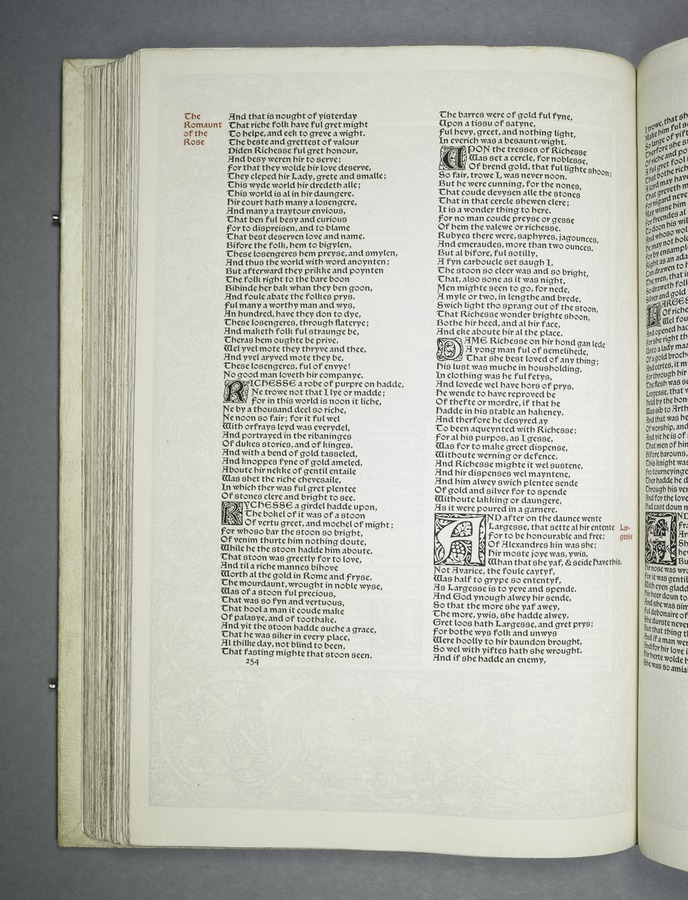 The
Romaunt
of the
Rose
And that is nought of yisterday
That riche folk have ful gret might
To helpe, and eek to greve a wight.
The beste and grettest of valour
Diden Richesse ful gret honour,
And besy weren hir to serve;
For that they wolde hir love deserve,
They cleped hir Lady, grete and smalle;
This wyde world hir dredeth alle;
This world is al in hir daungere.
Hir court hath many a losengere,
And many a traytour envious,
That ben ful besy and curious
For to dispreisen, and to blame
That best deserven love and name.
Bifore the folk, hem to bigylen,
These losengeres hem preyse, and smylen,
And thus the world with word anoynten;
But afterward they prikke and poynten
The folk right to the bare boon
Bihinde her bak whan they ben goon,
And foule abate the folkes prys.
Ful many a worthy man and wys,
An hundred, have they don to dye,
These losengeres, through flaterye;
And maketh folk ful straunge be,
Theras hem oughte be prive.
Wel yvel mote they thryve and thee,
And yvel aryved mote they be,
These losengeres, ful of envye!
No good man loveth hir companye.
RICHESSE a robe of purpre on hadde,
Ne trowe not that I lye or madde;
For in this world is noon it liche,
Ne by a thousand deel so riche,
Ne noon so fair; for it ful wel
With orfrays leyd was everydel,
And portrayed in the ribaninges
Of dukes stories, and of kinges.
And with a bend of gold tasseled,
And knoppes fyne of gold ameled.
Aboute hir nekke of gentil entaile
Was shet the riche chevesaile,
In which ther was ful gret plentee
Of stones clere and bright to see.
RYCHESSE a girdel hadde upon,
The bokel of it was of a stoon
Of vertu greet, and mochel of might;
For whoso bar the stoon so bright,
Of venim thurte him nothing doute,
While he the stoon hadde him aboute.
That stoon was greetly for to love,
And til a riche mannes bihove
Worth al the gold in Rome and Fryse.
The mourdaunt, wrought in noble wyse,
Was of a stoon ful precious,
That was so fyn and vertuous,
That hool a man it coude make
Of palasye, and of toothake.
And yit the stoon hadde suche a grace,
That he was siker in every place,
Al thilke day, not blind to been,
That fasting mighte that stoon seen.
254
The barres were of gold ful fyne,
Upon a tissu of satyne,
Ful hevy, greet, and nothing light,
In everich was a besaunt-wight.
UPON the tresses of Richesse
Was set a cercle, for noblesse,
Of brend gold, that ful lighte shoon;
So fair, trowe I, was never noon.
But he were cunning, for the nones,
That coude devysen alle the stones
That in that cercle shewen clere;
It is a wonder thing to here.
For no man coude preyse or gesse
Of hem the valewe or richesse.
Rubyes there were, saphyres, jagounces,
And emeraudes, more than two ounces.
But al bifore, ful sotilly,
A fyn carboucle set saugh I.
The stoon so cleer was and so bright,
That, also sone as it was night,
Men mighte seen to go, for nede,
A myle or two, in lengthe and brede.
Swich light tho sprang out of the stoon,
That Richesse wonder brighte shoon,
Bothe hir heed, and al hir face,
And eke aboute hir al the place.
DAME Richesse on hir hond gan lede
A yong man ful of semelihede,
That she best loved of any thing;
His lust was muche in housholding.
In clothing was he ful fetys,
And lovede wel have hors of prys.
He wende to have reproved be
Of thefte or mordre, if that he
Hadde in his stable an hakeney.
And therfore he desyred ay
To been aqueynted with Richesse;
For al his purpos, as I gesse,
Was for to make greet dispense,
Withoute werning or defence.
And Richesse mighte it wel sustene,
And hir dispenses wel mayntene,
And him alwey swich plentee sende
Of gold and silver for to spende
Withoute lakking or daungere,
As it were poured in a garnere.
AND after on the daunce wente
Largesse, that sette al hir entente
For to be honourable and free;
Of Alexandres kin was she;
Hir moste joye was, ywis,
Whan that she yaf, & seide Have this.
Lar-
gesse
Not Avarice, the foule caytyf,
Was half to grype so ententyf,
As Largesse is to yeve and spende.
And God ynough alwey hir sende,
So that the more she yaf awey,
The more, ywis, she hadde alwey.
Gret loos hath Largesse, and gret prys;
For bothe wys folk and unwys
Were hoolly to hir baundon brought,
So wel with yiftes hath she wrought.
And if she hadde an enemy,